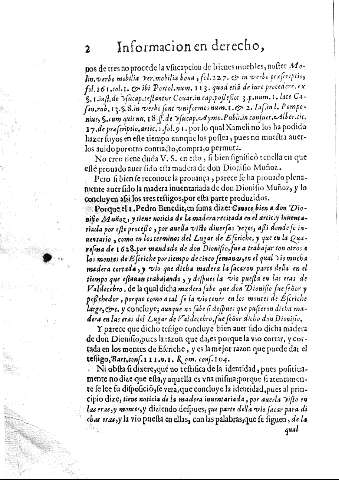 2 Informacion en derecho,
nos de tres no procede la vsucapion de bienes muebles, nuster Mo-
lin. verbo mobilia ver. mobilia bona, fol. 227. & in verbo præscriptio,
fol. 261. col. 1. & ibi Portol. num. 113. quod etiã de iure procedere, ex
17. de præscriptio, artic. 1. fol. 91. por lo qual Xameli no los ha podido
hazer suyos en este tiempo aunque los posea, pues no muestra auer-
los auido por otro contracto, compra, o permuta.
No creo tiene duda V. S. en esto, si bien significó tenella en que
esté prouado auer sido esta madera de don Dionisio Muñoz.
Pero si bien se reconoce la prouança, parece se ha prouado plena-
mente auer sido la madera inuentariada de don Dionisio Muñoz, y lo
concluyen assi los tres testigos, por esta parte produzidos.
Porque el 1. Pedro Benedit, en suma dize: Conoce bien a don Dio-
nisio Muñoz, y tiene noticia de la madera recitada en el artic. y inuenta-
riada por este processo, y por auella visto diuersas vezes, assi donde se in-
uentariò, como en los terminos del Lugar de Escriche, y que en la Qua-
resma de 1628. por mandado de don Dionisio, fue a trabajar con otros a
los montes de Escriche por tiempo de cinco semanas, en el qual vio mucha
madera cortada, y vio que dicha madera la sacaron parte della en el
tiempo que estauan trabajando, y despues la vio puesta en las eras de
Valdecebro, de la qual dicha madera sabe que don Dionisio fue señor y
possehedor, porque como a tal se la vio tener en los montes de Escriche
large, &c. y concluye; aunque no sabe si despues que pusieron dicha ma-
dera en las eras del Lugar de Valdecebro, fue señor dicho don Dionisio.
Y parece que dicho testigo concluye bien auer sido dicha madera
de don Dionisio, pues la razon que da, es porque la vio cortar, y cor-
tada en los montes de Escriche, y es la mejor razon que puede dar el
testigo, Bart. cons. 111. n. 1. Rom. cons. 104.
Ni obsta si dixere, que no testifica de la identidad, pues positiua-
mente no dize que esta, y aquella es vna misma; porque si atentamen-
te se lee su disposició, se verà, que concluye la identidad, pues al prin-
cipio dize, tiene noticia de la madera inuentariada, por auella visto en
las eras, y monte, y diziendo despues, que parte della vio sacar para di-
chas eras, y la vio puesta en ellas, con las palabras, que se siguen, de la
qual